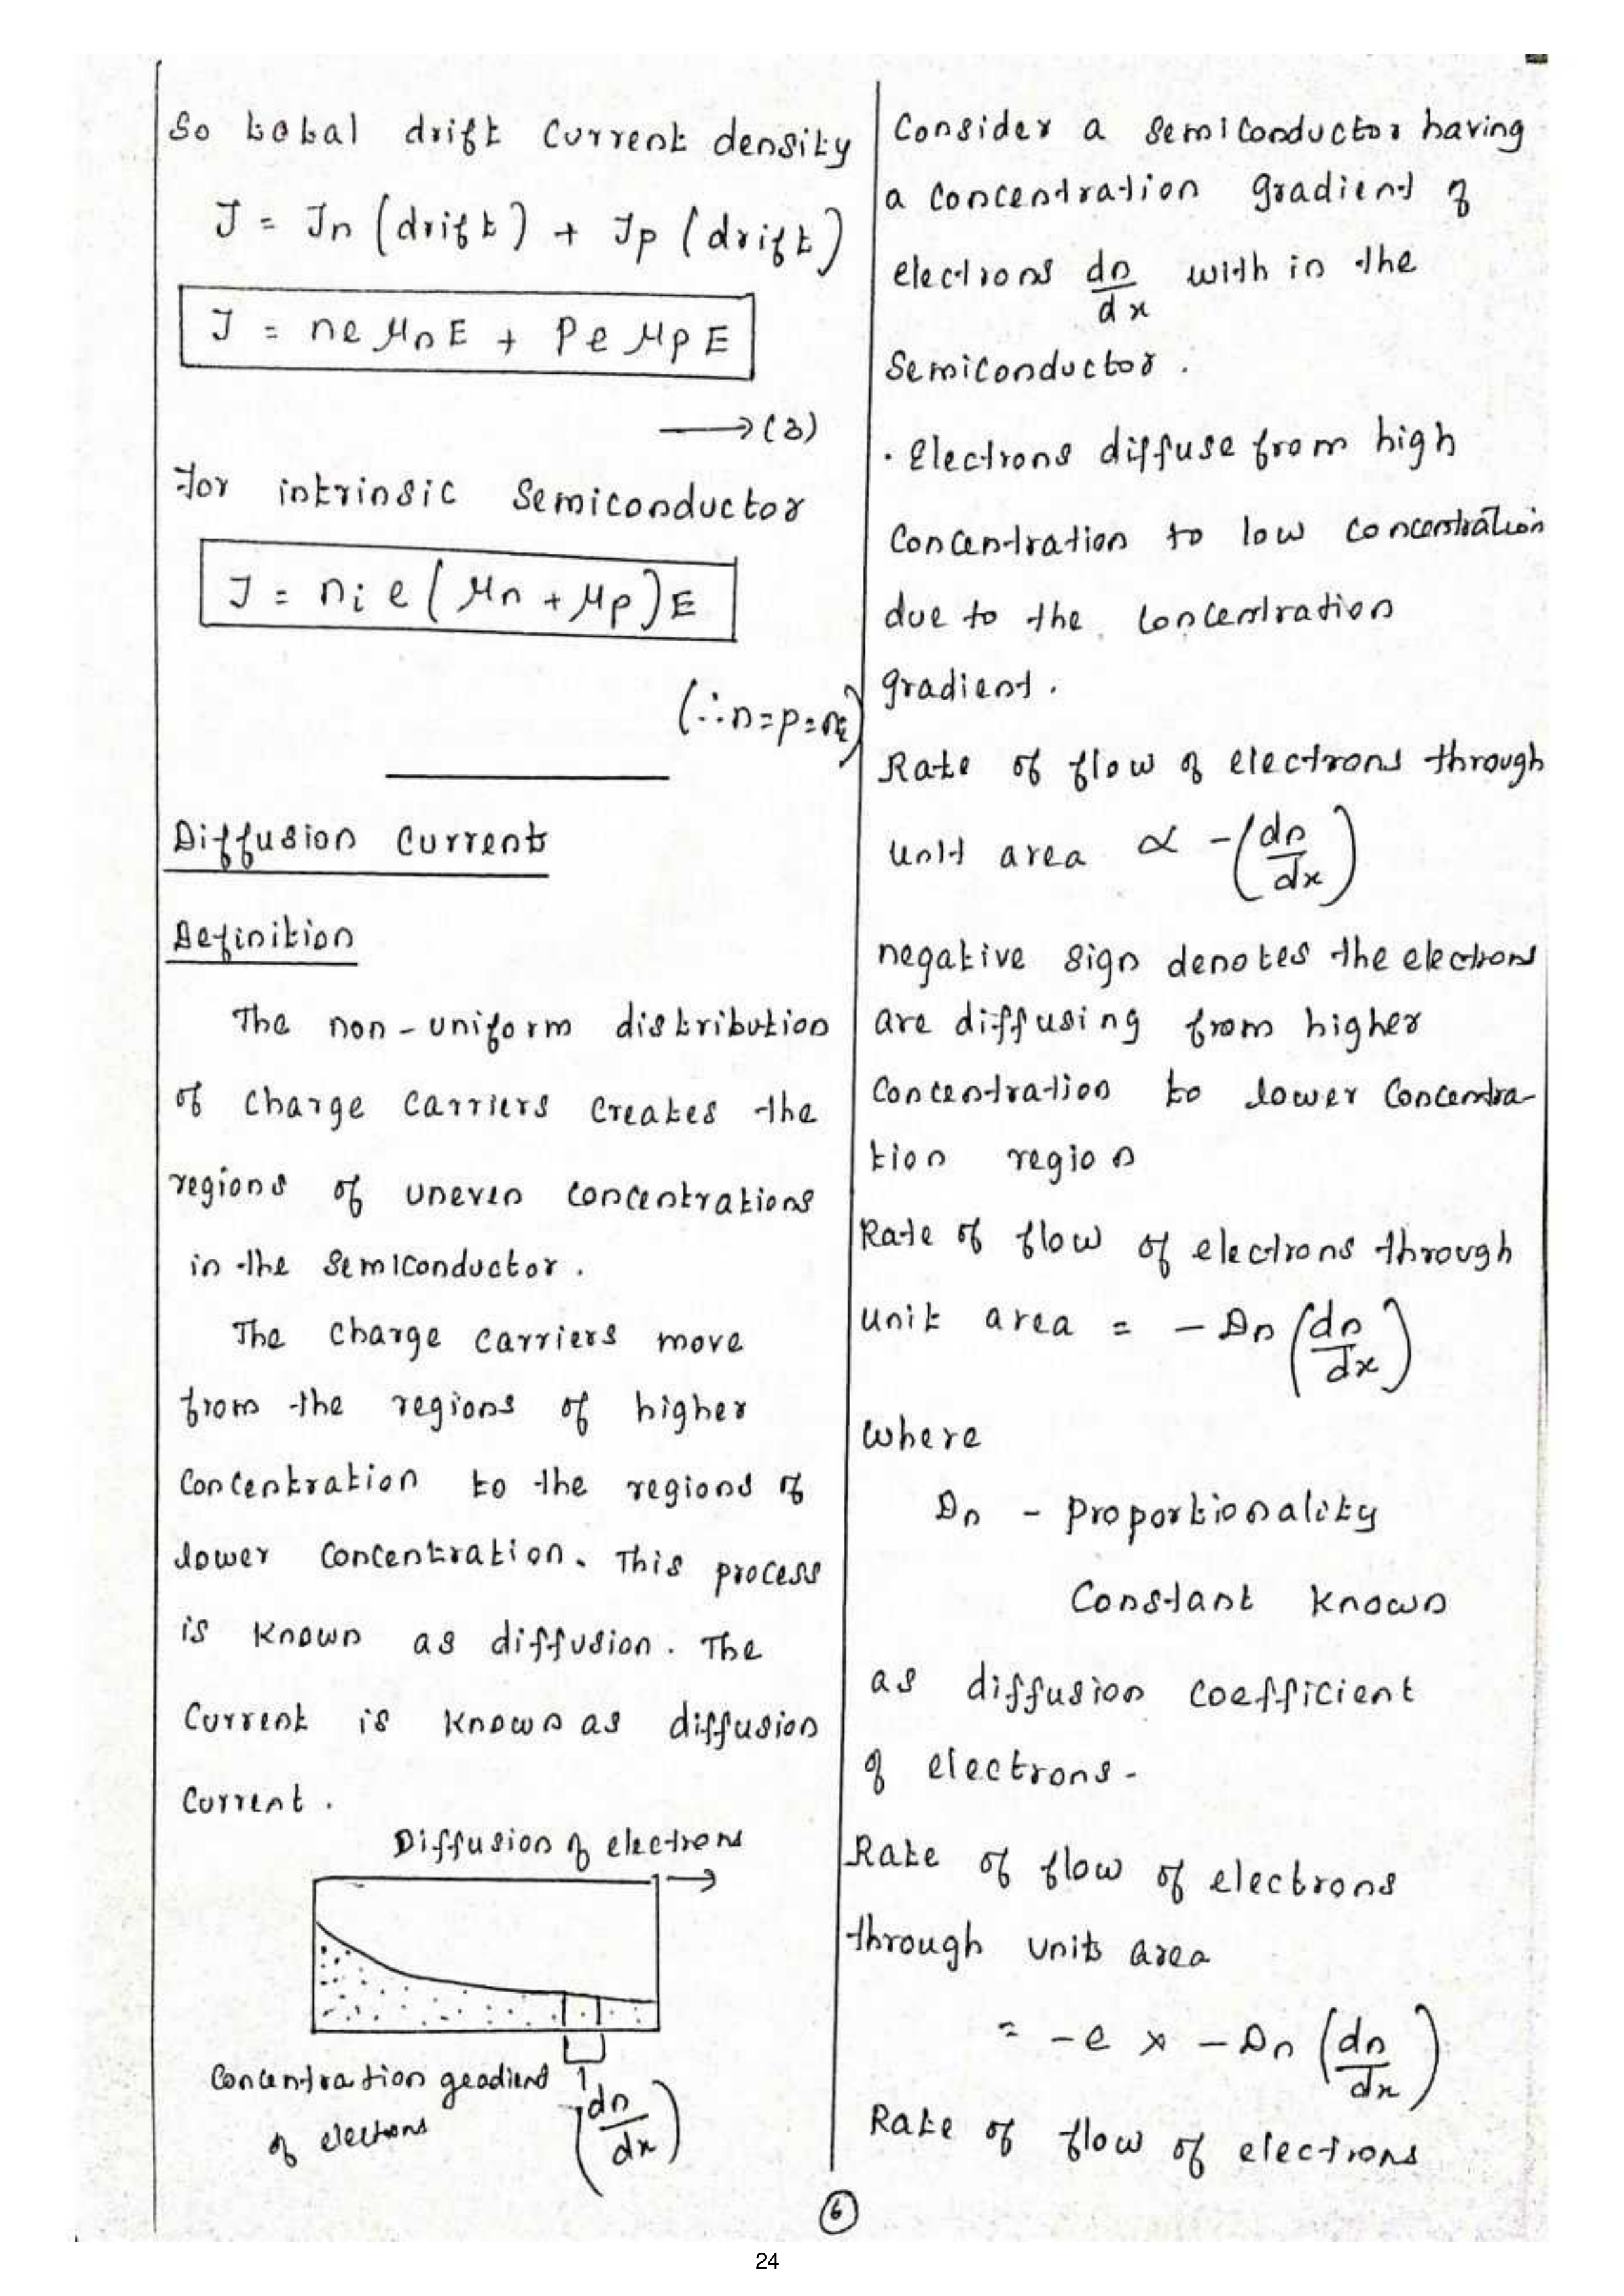 So total drift current density
J = Jn (drift) + Jp (drift)
J = ne μn E + Pe μp E
⟶ (3)
for intrinsic semiconductor
J = ni e (μn + μp) E
(∴ n = p = ni)
Diffusion Current
Definition
The non-uniform distribution
of charge carriers creates the
regions of uneven concentrations
in the semiconductor.
The charge carriers move
from the regions of higher
concentration to the regions of
lower concentration. This process
is known as diffusion. The
current is known as diffusion
current.
Diffusion of electrons
→
Concentration geadient
of electrons
(dn/dx)
Consider a semiconductor having
a concentration gradient of
electrons dn/dx with in the
Semiconductor.
· Electrons diffuse from high
concentration to low concentration
due to the concentration
gradient.
Rate of flow of electrons through
unit area ∝ -(dn/dx)
negative sign denotes the electrons
are diffusing from higher
concentration to lower concentra-
tion region
Rate of flow of electrons through
unit area = - Dn (dn/dx)
where
Dn - proportionality
constant known
as diffusion coefficient
of electrons-
Rate of flow of electrons
through units area
= -e x - Dn (dn/dx)
Rate of flow of electrons
6
24